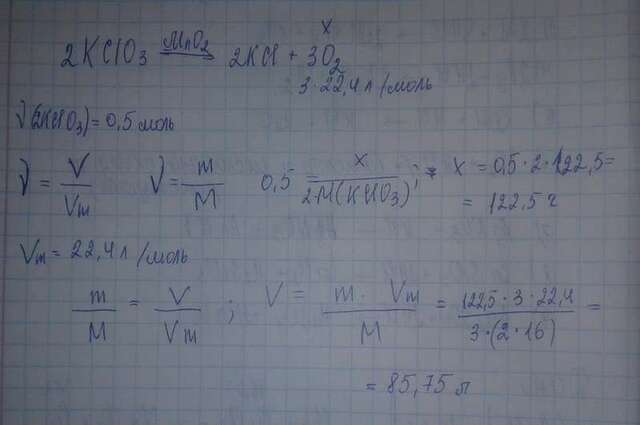 x
2KClO3 MnO2 ⟹ 2KCl + 3O2
3·22,4 л/моль
ν(2KClO3) = 0,5 моль
ν = V/Vm ν = m/M 0,5 = x/2·M(KClO3) ; x = 0,5·2·122,5=
= 122,5 г
Vm = 22,4 л/моль
m/M = V/Vm ; V = m·Vm/M = 122,5·3·22,4/3·(2·16) =
= 85,75 л